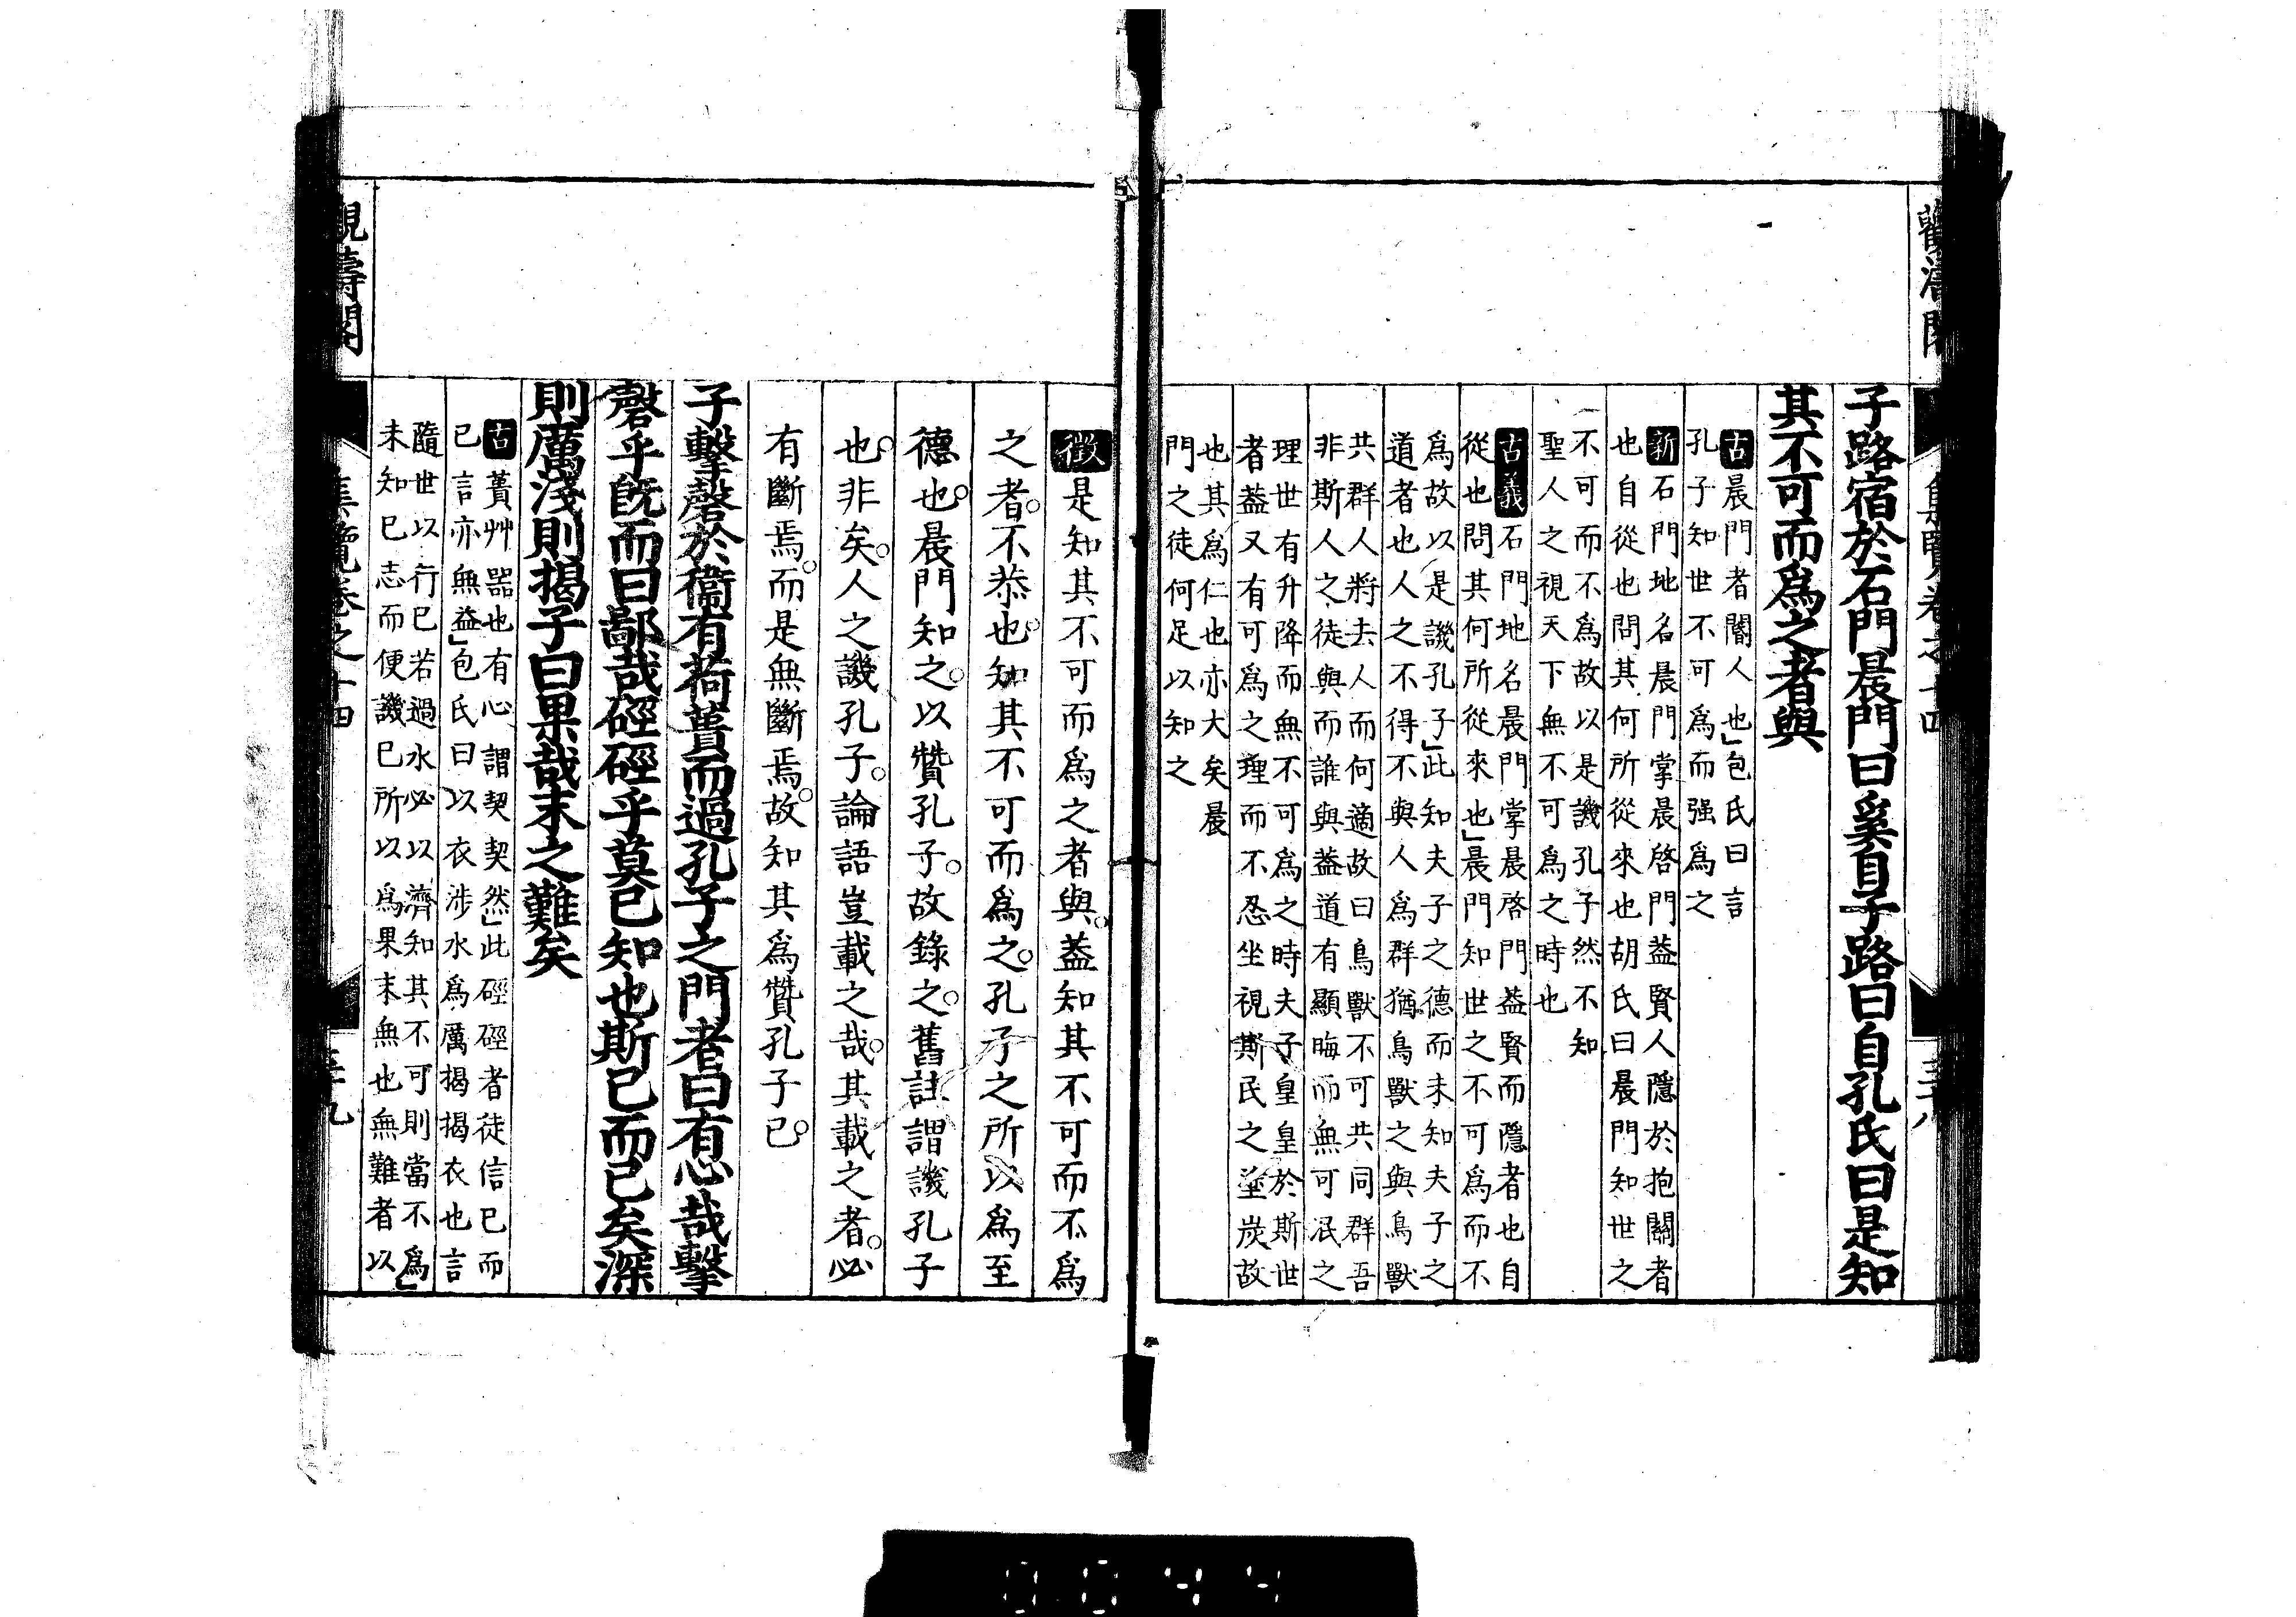 子路宿於石門晨門曰奚自子路曰自孔氏曰是知
其不可而爲之者與
古晨門者閽人也」包氏曰言
孔子知世不可爲而强爲之
新石門地名晨門掌晨啓門葢賢人隱於抱關者
也自從也問其何所從來也胡氏曰晨門知世之
不可而不爲故以是譏孔子然不知
聖人之視天下無不可爲之時也
古義石門地名晨門掌晨啓門葢賢而隱者也自
從也問其何所從來也」晨門知世之不可爲而不
爲故以是譏孔子」此知夫子之德而未知夫子之
道者也人之不得不與人爲群猶鳥獸之與鳥獸
共群人將去人而何適故曰鳥獸不可共同群吾
非斯人之徒與而誰與葢道有顯晦而無可泯之
理世有升降而無不可爲之時夫子皇皇於斯世
者葢又有可爲之理而不忍坐視斯民之塗炭故
也其爲仁也亦大矣晨
門之徒何足以知之
徵是知其不可而爲之者與。葢知其不可而不爲
之者。不恭也。知其不可而爲之。孔子之所以爲至
德也。晨門知之。以贊孔子。故錄之。舊註謂譏孔子
也。非矣。人之譏孔子。論語豈載之哉。其載之者。必
有斷焉。而是無斷焉。故知其爲贊孔子已。
子擊磬於衞有荷蕢而過孔子之門者曰有心哉擊
磬乎旣而曰鄙哉硜硜乎莫己知也斯已而已矣深
則厲淺則揭子曰果哉末之難矣
古蕢艸器也有心謂契契然」此硜硜者徒信己而
已言亦無益」包氏曰以衣涉水爲厲揭揭衣也言
隨世以行己若過水必以濟知其不可則當不爲」
未知己志而便譏己所以爲果末無也無難者以
觀濤閣
集覽卷之十四